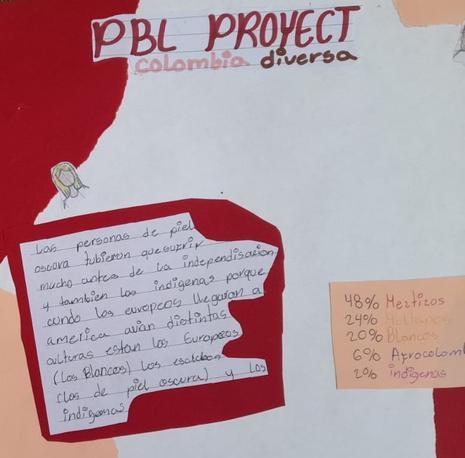 PBL PROYECT
colombia diversa
Las personas de piel
oscura tubieron que sufrir
mucho antes de la independisacion
y tambien los indigenas porque
cundo los europeos llegaron a
america avian distintas
culturas estan los Europeos
(los Blancos) los esclabos
(los de piel oscura) y los
indigenas
48% Mestizos
24%
20% Blancos
6% Afrocolom
2% indigenas